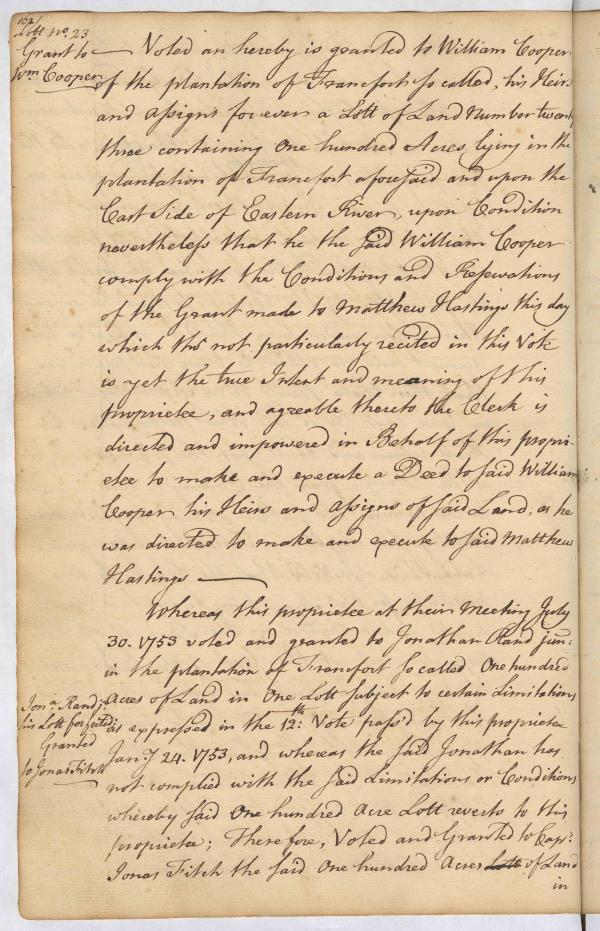 102/
Lott no. 23
Grant to
Wm Cooper
Voted an hereby is granted to William Cooper
of the plantation of Francfort so called, his Heirs
and assigns forever a Lott of Land Number twenty
three containing One hundred Acres lying in the
plantation of Francfort aforesaid and upon the
East Side of Eastern River, upon Condition
nevertheless that he the said William Cooper
comply with the Conditions and Reservations
of the Grant made to Matthew Hastings this day
which tho' not particularly recited in this Vote
is yet the true Intent and meaning of this
proprietee, and agreable thereto the Clerk is
directed and impowered in Behalf of this propri-
etee to make and execute a Deed to said William
Cooper his Heirs and assigns of said Land, as he
was directed to make and execute to said Matthew
Hastings
Whereas this proprietee at their Meeting July
30. 1753 voted and granted to Jonathan Rand junr:
in the plantation of Francfort so called One hundred
Jona. Rand's
his Lott forfeited
Granted
to Jonas Fitch
Acres of Land in One Lott subject to certain Limitations
as expressed in the 12th: Vote pass'd by this proprietee
Jany 24. 1753, and whereas the said Jonathan has
not complied with the said Limitations or Conditions
whereby said One hundred Acre Lott reverts to this
proprietee; Therefore, Voted and Granted to Capt.
Jonas Fitch the said One hundred Acres Lott of Land
in